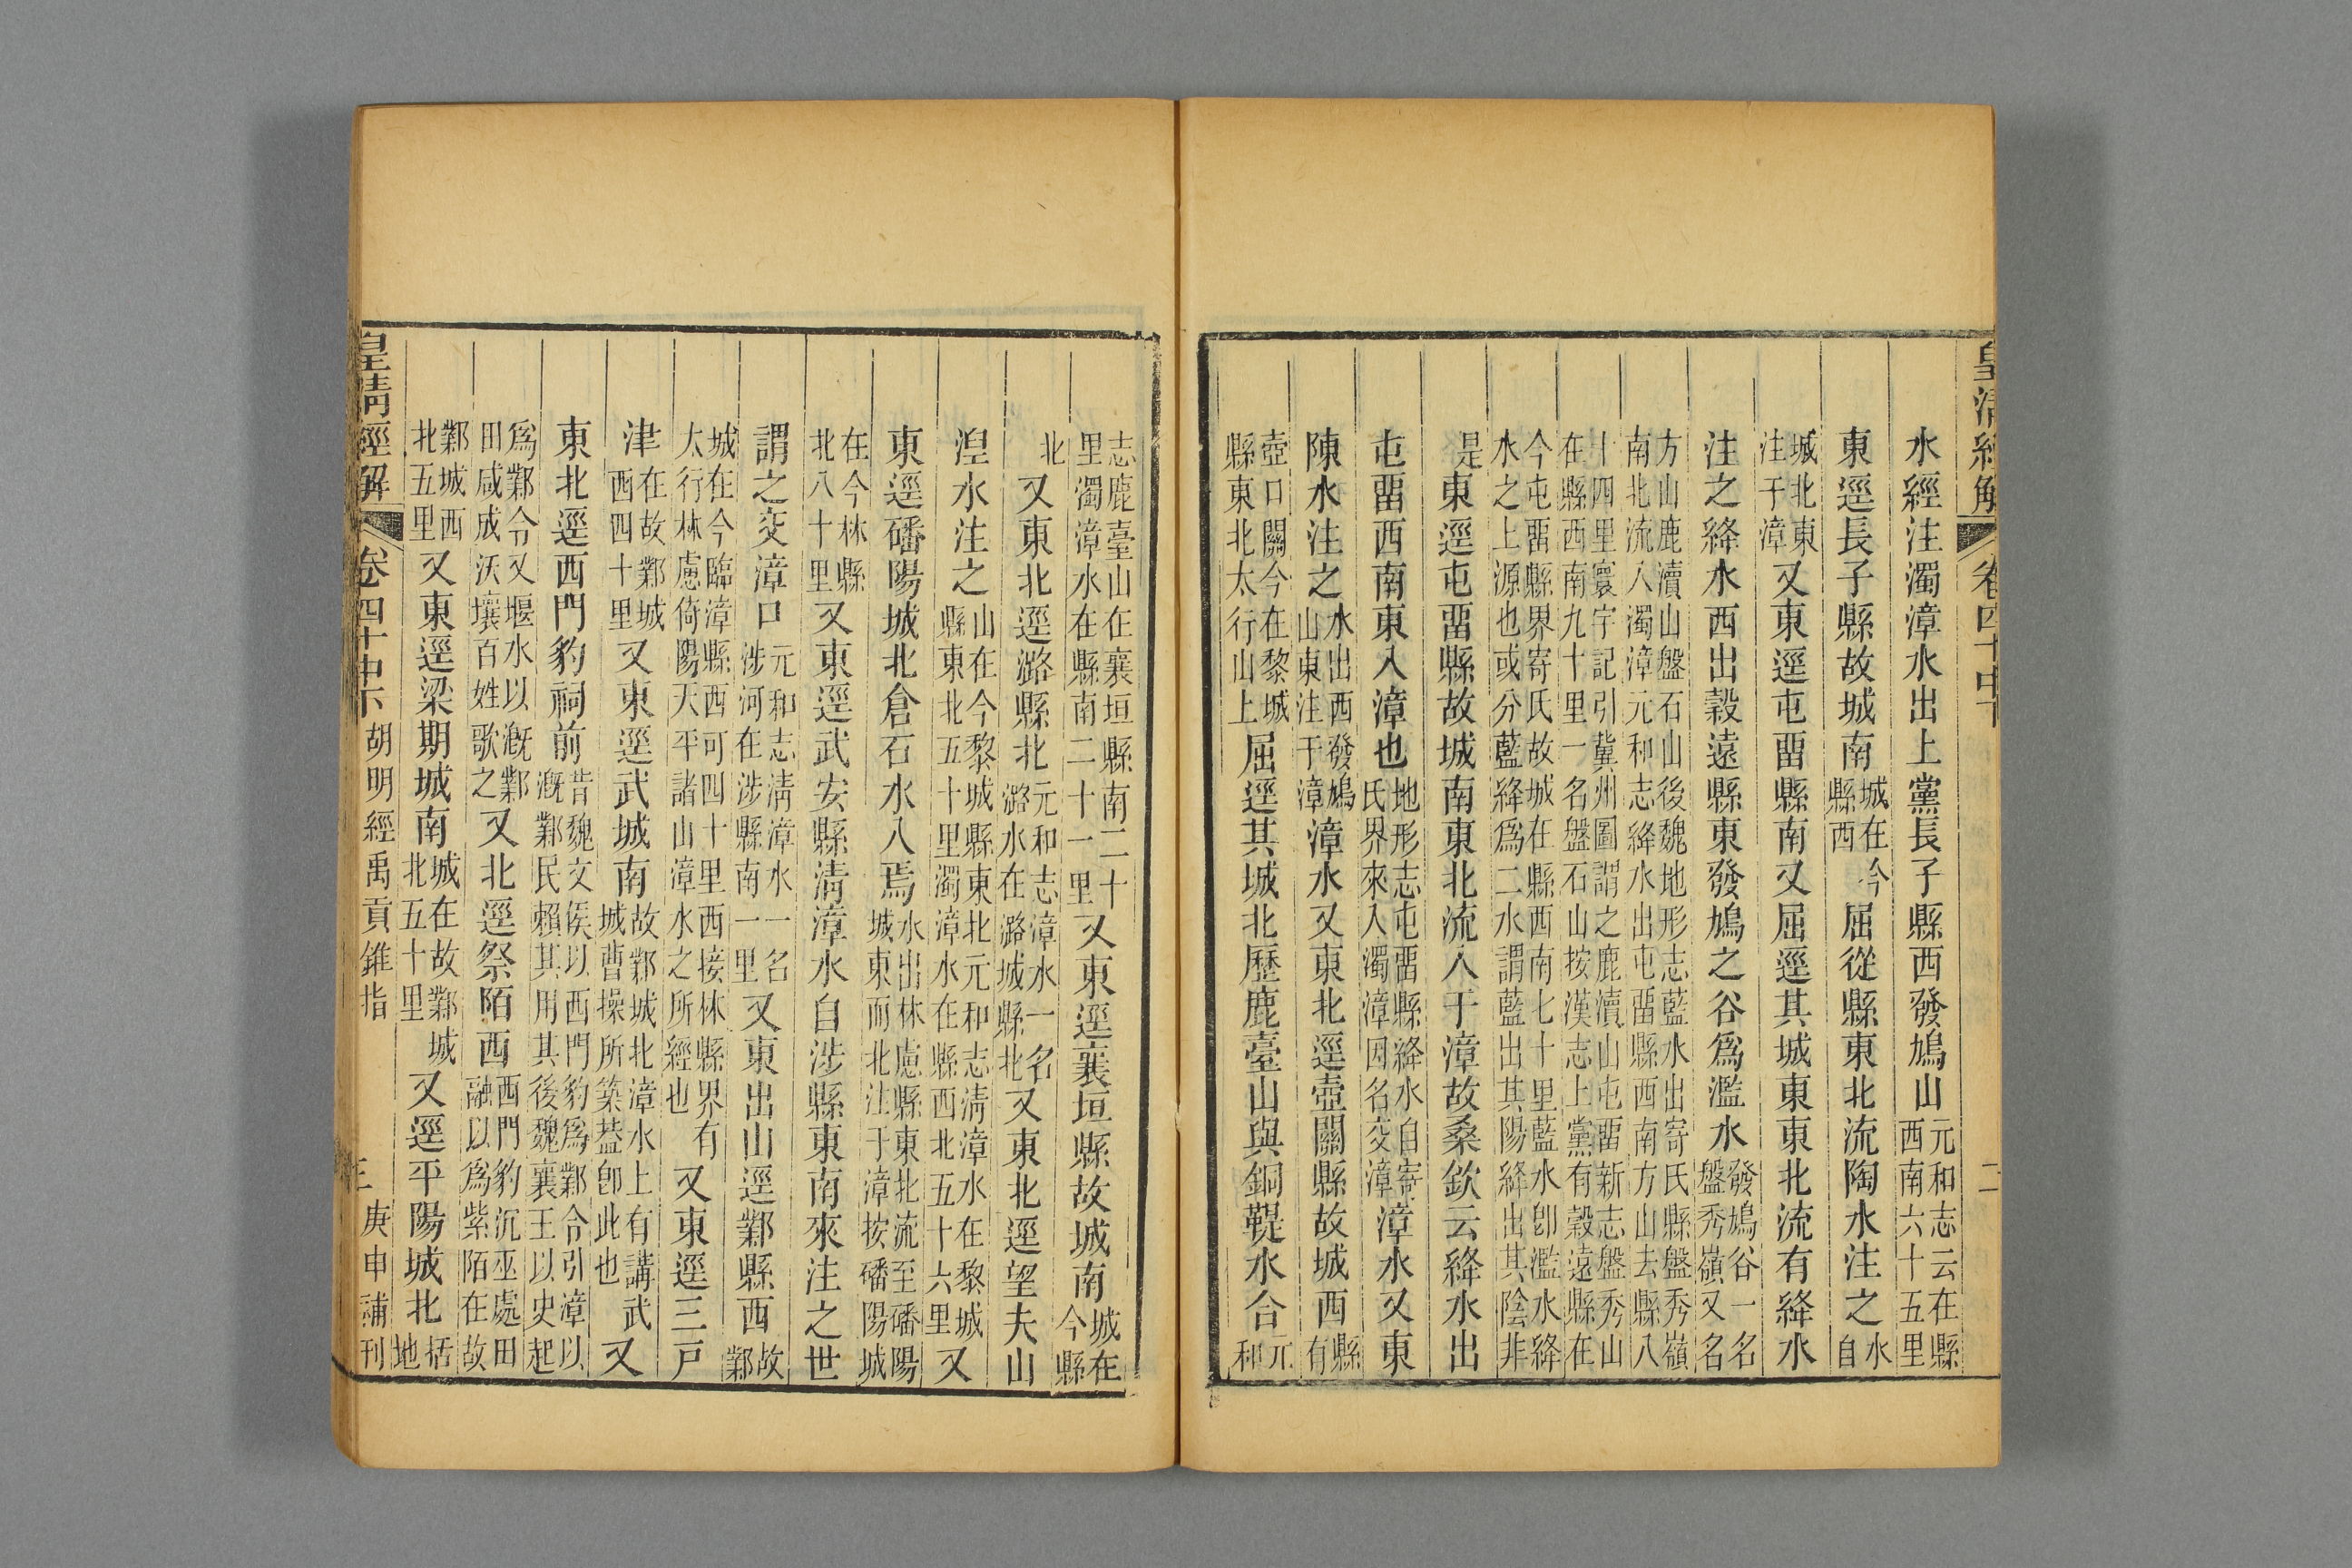 皇清經解 卷四十中下 二
水經注濁漳水出上黨長子縣西發鳩山元和志云在縣西南六十五里
東逕長子縣故城南城在今縣西屈從縣東北流陶水注之水自
城北東注于漳又東逕屯畱縣南又屈逕其城東東北流有絳水
注之絳水西出穀遠縣東發鳩之谷爲濫水發鳩谷一名盤秀嶺又名
方山鹿瀆山盤石山後魏地形志藍水出寄氏縣盤秀嶺
南北流入濁漳元和志絳水出屯畱縣西南方山去縣八
十四里寰宇記引冀州圖謂之鹿瀆山屯畱新志盤秀山
在縣西南九十里一名盤石山按漢志上黨有穀遠縣在
今屯畱縣界寄氏故城在縣西南七十里藍水卽濫水絳
水之上源也或分藍絳爲二水謂藍出其陽絳出其陰非
是東逕屯畱縣故城南東北流入于漳故桑欽云絳水出
屯畱西南東入漳也地形志屯畱縣絳水自寄氏界來入濁漳因名交漳漳水又東
陳水注之水出西發鳩山東注于漳漳水又東北逕壺關縣故城西縣有
壺口關今在黎城縣東北太行山上屈逕其城北歷鹿臺山與銅鞮水合元和
志鹿臺山在襄垣縣南二十里濁漳水在縣南二十一里又東逕襄垣縣故城南城在今縣
北又東北逕潞縣北元和志漳水一名潞水在潞城縣北又東北逕望夫山
湼水注之山在今黎城縣東北元和志清漳水在黎城縣東北五十里濁漳水在縣西北五十六里又
東逕磻陽城北倉石水入焉水出林慮縣東北流至磻陽城東而北注于漳按磻陽城
在今林縣北八十里又東逕武安縣清漳水自涉縣東南來注之世
謂之交漳口元和志清漳水一名涉河在涉縣南一里又東出山逕鄴縣西故鄴
城在今臨漳縣西可四十里西接林縣界有太行林慮倚陽天平諸山漳水之所經也又東逕三戸
津在故鄴城西四十里又東逕武城南故鄴城北漳水上有講武城曹操所築葢卽此也又
東北逕西門豹祠前昔魏文侯以西門豹爲鄴令引漳以漑鄴民賴其用其後魏襄王以史起
爲鄴令又堰水以漑鄴田咸成沃壤百姓歌之又北逕祭陌西西門豹沉巫處田融以爲紫陌在故
鄴城西北五里又東逕梁期城南城在故鄴城北五十里又逕平陽城北括地
皇清經解 卷四十中下 胡明經禹貢錐指 三 庚申補刊